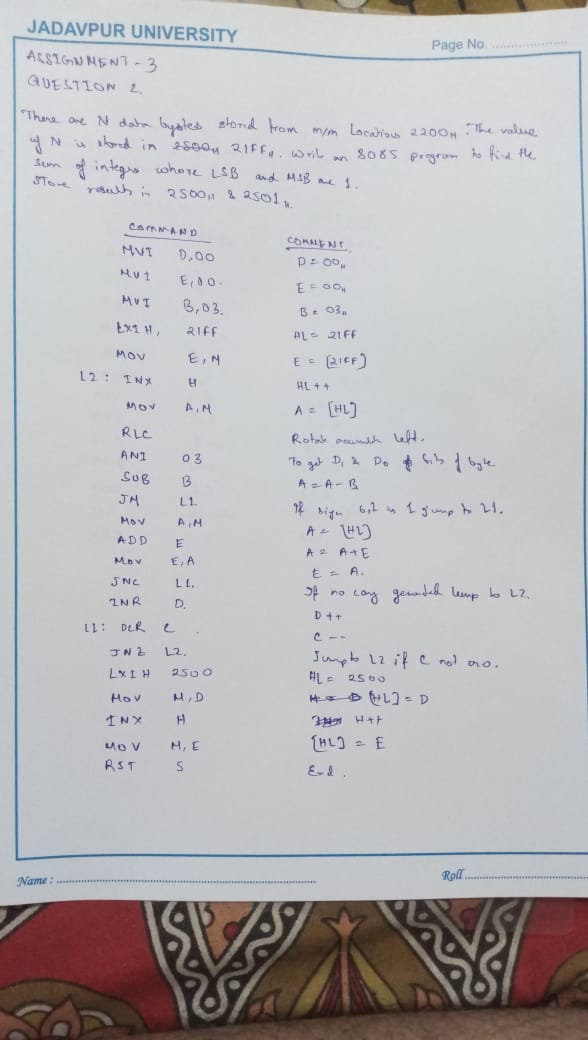 JADAVPUR UNIVERSITY
Page No. ....................
ASSIGNMENT - 3
QUESTION 2.
There are N data bytes stored from m/m Locations 2200H. The value
of N is stored in 2500H 21FFH. Write an 8085 program to find the
sum of integers whose LSB and MSB are 1.
Store results in 2500H & 2501H.
COMMAND COMMENT
MVI D,00 D = 00H
MVI E,00. E = 00H
MVI B,03. B = 03H
LXI H, 21FF HL = 21FF
MOV E, M E = [21FF]
L2 : INX H HL ++
MOV A, M A = [HL]
RLC Rotate left.
ANI 03 To get D1 & D0 bits of byte.
SUB B A = A - B
JM L1 If sign bit is 1 jump to L1.
MOV A, M A = [HL]
ADD E A = A + E
MOV E, A E = A.
JNC L1. If no generated Jump to L2.
INR D. D ++
L1: DCR C . C --
JNZ L2. Jump to L2 if C not
LXI H 2500 HL = 2500
MOV M, D [HL] = D
INX H H++
MOV M, E [HL] = E
RST 5 End.
Name : ....................
Roll ....................